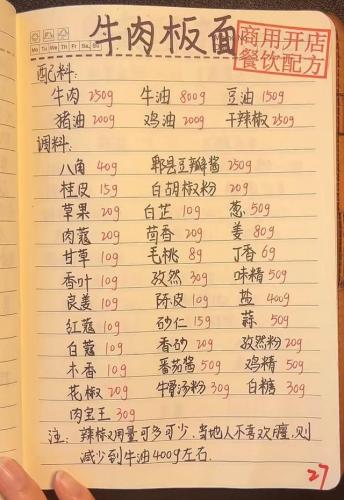 牛肉板面
商用开店
餐饮配方
Mo Tu We Th Fr Sa Su
配料:
牛肉 250g 牛油 800g 豆油 150g
猪油 200g 鸡油 200g 干辣椒 250g
调料:
八角 40g 郫县豆瓣酱 250g
桂皮 15g 白胡椒粉 20g
草果 20g 白芷 10g 葱 50g
肉蔻 20g 茴香 20g 姜 80g
甘草 10g 毛桃 8g 丁香 6g
香叶 10g 孜然 30g 味精 50g
良姜 10g 陈皮 10g 盐 400g
红蔻 10g 砂仁 15g 蒜 50g
白蔻 10g 香砂 20g 孜然粉 20g
木香 10g 番茄酱 50g 鸡精 50g
花椒 20g 牛骨汤粉 30g 白糖 30g
肉宝王 30g
注: 辣椒用量可多可少,当地人不喜欢膻,则
减少到牛油400g左右.
27